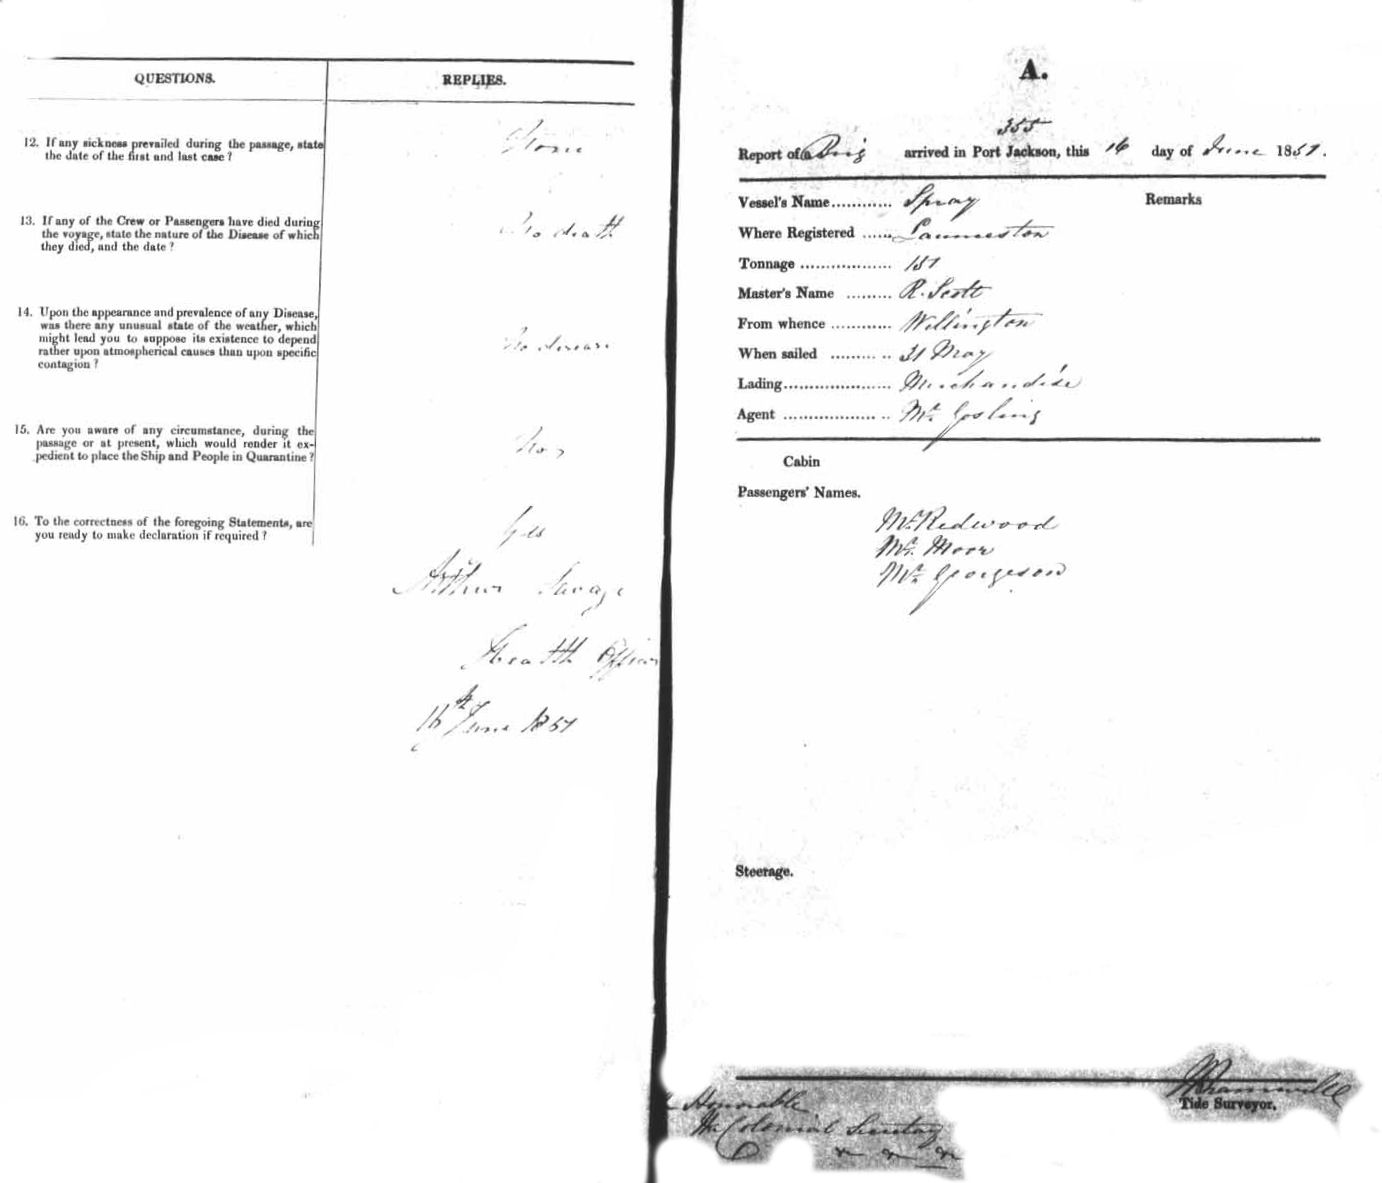 QUESTIONS. REPLIES.
12. If any sickness prevailed during the passage, state
the date of the first and last case ?
None
13. If any of the Crew or Passengers have died during
the voyage, state the nature of the Disease of which
they died, and the date ?
No death
14. Upon the appearance and prevalence of any Disease,
was there any unusual state of the weather, which
might lead you to suppose its existence to depend
rather upon atmospherical causes than upon specific
contagion ?
No disease
15. Are you aware of any circumstance, during the
passage or at present, which would render it ex-
pedient to place the Ship and People in Quarantine ?
No
16. To the correctness of the foregoing Statements, are
you ready to make declaration if required ?
Yes
Arthur Savage
Health Officer
16th June 1851
A.
355
Report of a Brig arrived in Port Jackson, this 16 day of June 1851.
Vessel's Name............ Spray Remarks
Where Registered ...... Launceston
Tonnage .................. 151
Master's Name ......... R. Scott
From whence ............ Wellington
When sailed ......... .. 31 May
Lading..................... Merchandise
Agent .................. .. Mr Gosling
Cabin
Passengers' Names.
Mr Redwood
Mr. Moor
Mr Georgeson
Steerage.
Tide Surveyor.
Honorable
The Colonial Secretary